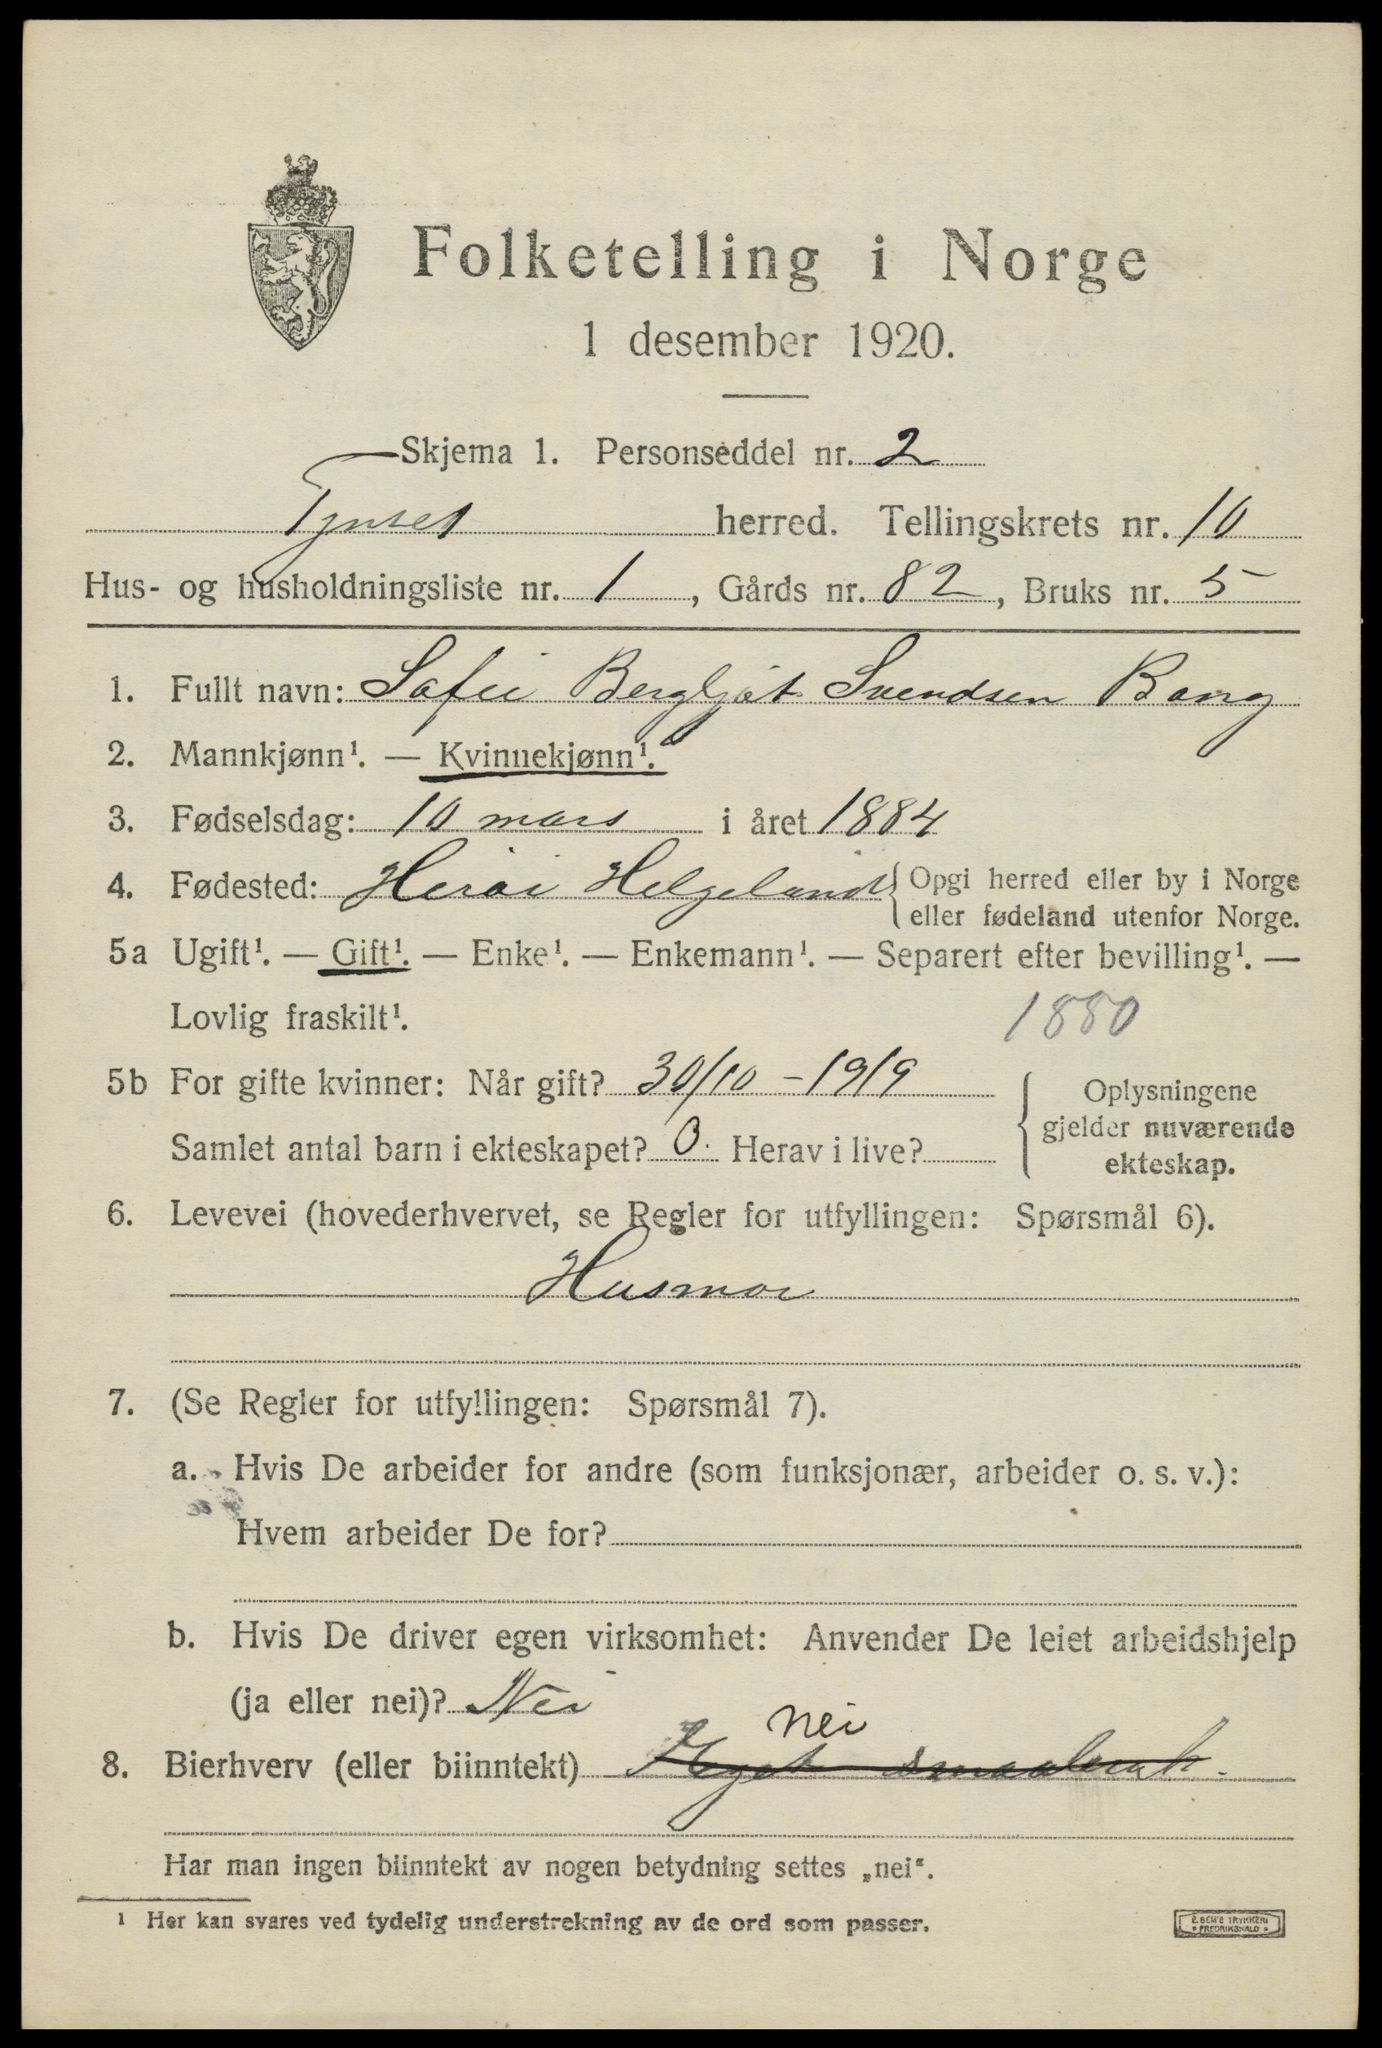 Folketelling i Norge
1 desember 1920.
Skjema 1. Personseddel nr. 2
Tynset herred. Tellingskrets nr. 10
Hus- og husholdningsliste nr. 1, Gårds nr. 82, Bruks nr. 5
1. Fullt navn: Sofie Bergljót Svendsen Bang
2. Mannkjønn¹. — Kvinnekjønn¹.
3. Fødselsdag: 10 mars i året 1884
4. Fødested: Herøi Helgeland { Opgi herred eller by i Norge
eller fødeland utenfor Norge.
5a Ugift¹. — Gift¹. — Enke¹. — Enkemann¹. — Separert efter bevilling¹. —
Lovlig fraskilt¹. 1880
5b For gifte kvinner: Når gift? 30/10 - 1919
Samlet antal barn i ekteskapet? 0. Herav i live?
{ Oplysningene
gjelder nuværende
ekteskap.
6. Levevei (hovederhvervet, se Regler for utfyllingen: Spørsmål 6).
Husmor
7. (Se Regler for utfyllingen: Spørsmål 7).
a. Hvis De arbeider for andre (som funksjonær, arbeider o. s. v.):
Hvem arbeider De for?
b. Hvis De driver egen virksomhet: Anvender De leiet arbeidshjelp
(ja eller nei)? Nei
nei
8. Bierhverv (eller biinntekt)
Har man ingen biinntekt av nogen betydning settes „nei“.
¹ Her kan svares ved tydelig understrekning av de ord som passer.
E. SEM'S TRYKKERI
• FREDRIKSHALD •